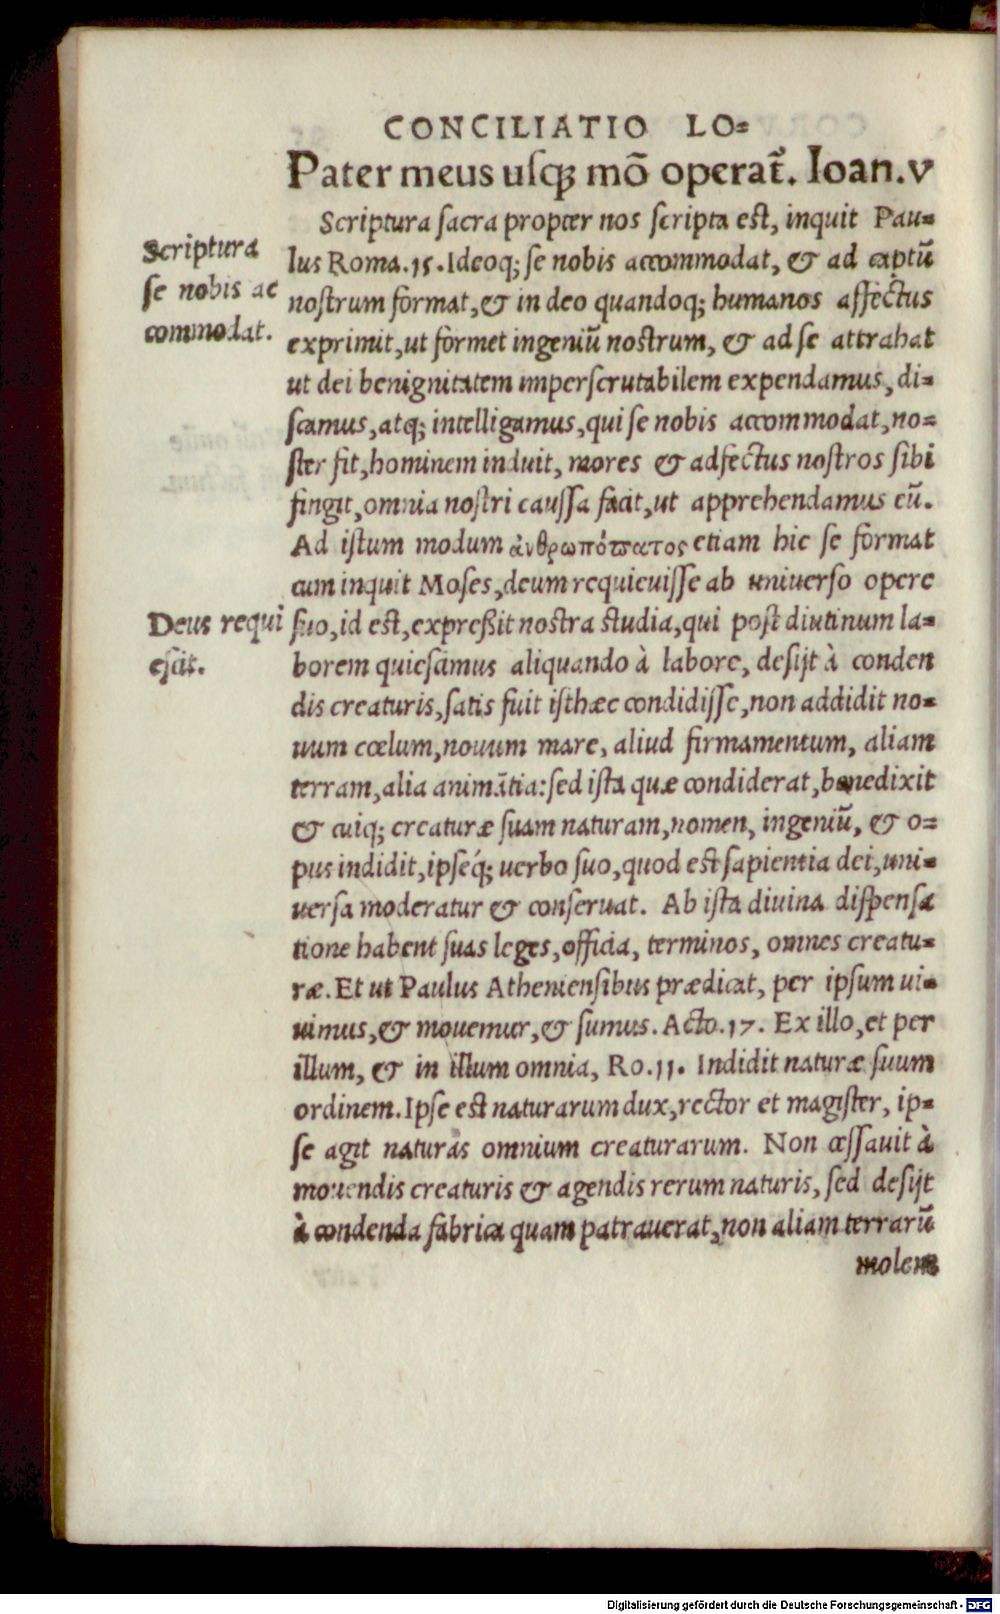 CONCILIATIO LO=
Pater meus uſq; mō operat̄. Ioan.v
Scriptura ſacra propter nos ſcripta eſt, inquit Pau=
lus Roma.15. Ideoq; ſe nobis accommodat, & ad captū
noſtrum format, & in deo quandoq; humanos affectus
exprimit, ut formet ingeniū noſtrum, & ad ſe attrahat
ut dei benignitatem imperſcrutabilem expendamus, di=
ſcamus, atq; intelligamus, qui ſe nobis accommodat, no=
ſter fit, hominem induit, mores & adfectus noſtros ſibi
fingit, omnia noſtri cauſſa facit, ut apprehendamus eū.
Ad iſtum modum ἀνθρωπόπατος etiam hic ſe format
cum inquit Moſes, deum requieuiſſe ab uniuerſo opere
ſuo, id eſt, expreßit noſtra ſtudia, qui poſt diutinum la=
borem quieſcimus aliquando à labore, deſijt à conden
dis creaturis, ſatis fuit iſthæc condidiſſe, non addidit no=
uum cœlum, nouum mare, aliud firmamentum, aliam
terram, alia animātia: ſed iſta quæ condiderat, benedixit
& cuiq; creaturæ ſuam naturam, nomen, ingeniū, & o=
pus indidit, ipſéq; uerbo ſuo, quod eſt ſapientia dei, uni=
uerſa moderatur & conſeruat. Ab iſta diuina diſpenſa
tione habent ſuas leges, officia, terminos, omnes creatu=
ræ. Et ut Paulus Athenienſibus prædicat, per ipſum ui=
uimus, & mouemur, & ſumus. Acto.17. Ex illo, et per
illum, & in illum omnia, Ro.11. Indidit naturæ ſuum
ordinem. Ipſe eſt naturarum dux, rector et magiſter, ip=
ſe agit naturas omnium creaturarum. Non ceſſauit à
mouendis creaturis & agendis rerum naturis, ſed deſijt
à condenda fabrica quam patrauerat, non aliam terrarū
molem
Scriptura
ſe nobis ac
commodat.
Deus requi
eſcit.
Digitalisierung gefördert durch die Deutsche Forschungsgemeinschaft - DFG